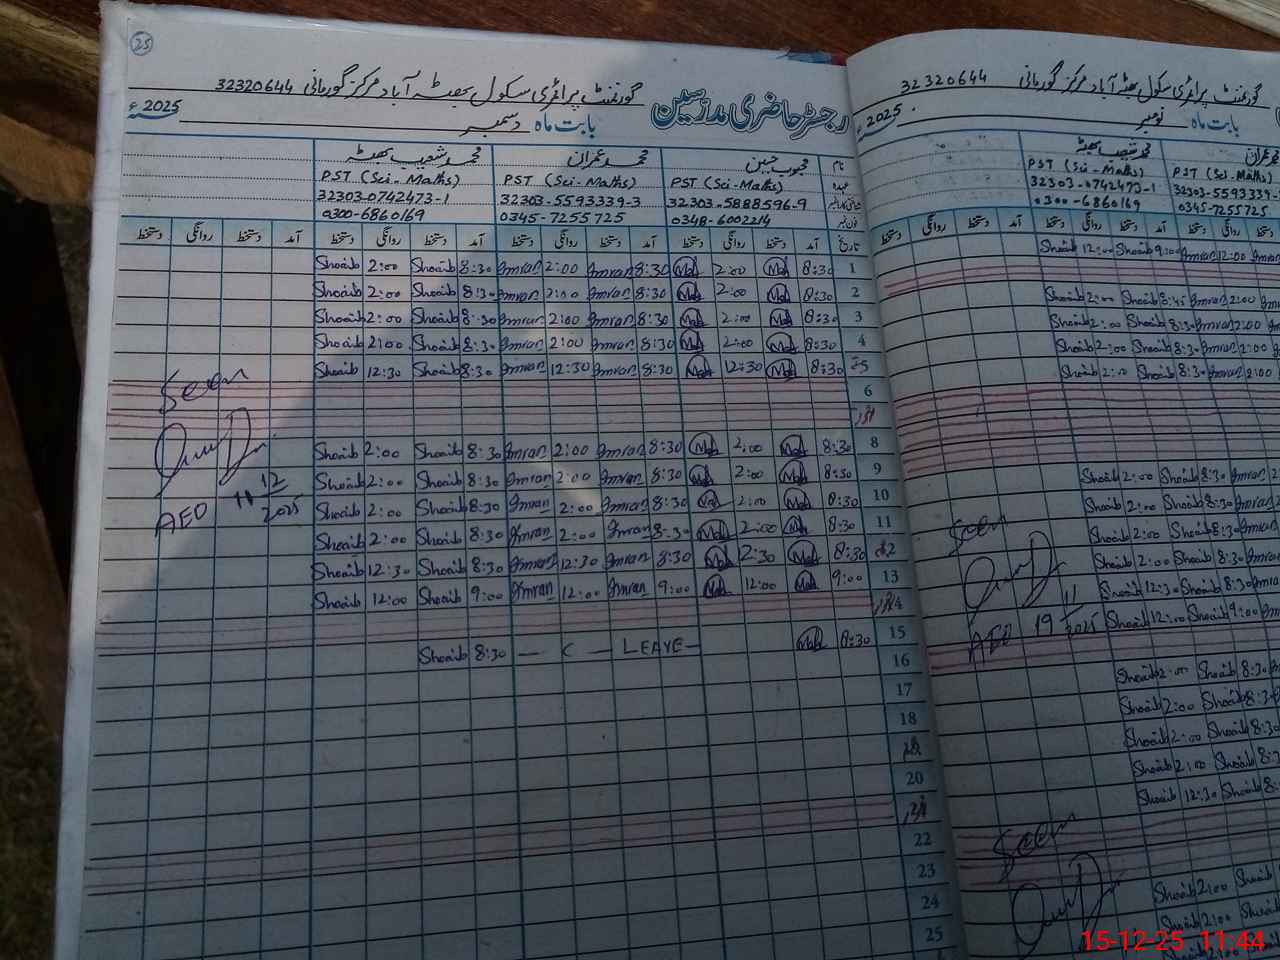 25
گورنمنٹ پرائمری سکول بھٹہ آباد مرکز گورمانی 32320644
رجسٹر حاضری مدرسین
بابت ماہ دسمبر 2025ء
نام محبوب حسین محمد عمران محمد شعیب بھٹہ
عہدہ PST (Sci-Maths) PST (Sci-Maths) PST (Sci-Maths)
32303-5888596-9 32303-5593339-3 32303-0742473-1
0348-6002214 0345-7255725 0300-6860169
تاریخ آمد دستخط روانگی دستخط آمد دستخط روانگی دستخط آمد دستخط روانگی دستخط آمد دستخط روانگی دستخط
Shoaib 2:00 Shoaib 8:30 Imran 2:00 Imran 8:30 Mah 2:00 Mah 8:30 1
Shoaib 2:00 Shoaib 8:30 Imran 2:00 Imran 8:30 Mah 2:00 Mah 8:30 2
Shoaib 2:00 Shoaib 8:30 Imran 2:00 Imran 8:30 Mah 2:00 Mah 8:30 3
Shoaib 2:00 Shoaib 8:30 Imran 2:00 Imran 8:30 Mah 2:00 Mah 8:30 4
Shoaib 12:30 Shoaib 8:30 Imran 12:30 Imran 8:30 Mah 12:30 Mah 8:30 5
6
اتوار
Shoaib 2:00 Shoaib 8:30 Imran 2:00 Imran 8:30 Mah 2:00 Mah 8:30 8
Shoaib 2:00 Shoaib 8:30 Imran 2:00 Imran 8:30 Mah 2:00 Mah 8:30 9
Shoaib 2:00 Shoaib 8:30 Imran 2:00 Imran 8:30 Mah 2:00 Mah 8:30 10
Shoaib 2:00 Shoaib 8:30 Imran 2:00 Imran 8:30 Mah 2:00 Mah 8:30 11
Shoaib 12:30 Shoaib 8:30 Imran 12:30 Imran 8:30 Mah 2:30 Mah 8:30 12
Shoaib 12:00 Shoaib 9:00 Imran 12:00 Imran 9:00 Mah 12:00 Mah 9:00 13
14
Shoaib 8:30 — C — LEAVE — Mah 8:30 15
16
17
18
20
22
23
24
25
Seen
AEO 11 12/2025
گورنمنٹ پرائمری سکول بھٹہ آباد مرکز گورمانی 32320644
بابت ماہ نومبر 2025ء
محمد عمران محمد شعیب بھٹہ
PST (Sci-Maths)
32303-5593339 32303-0742473-1
0345-7255725 0300-6860169
آمد دستخط روانگی دستخط آمد دستخط روانگی دستخط
Shoaib 12:00 Shoaib 9:00 Imran 12:00 Imran
Shoaib 2:00 Shoaib 8:45 Imran 2:00
Shoaib 2:00 Shoaib 8:30 Imran 2:00
Shoaib 2:00 Shoaib 8:30 Imran 2:00
Shoaib 2:00 Shoaib 8:30 Imran 2:00
Shoaib 2:00 Shoaib 8:30 Imran
Shoaib 2:00 Shoaib 8:30 Imran
Shoaib 2:00 Shoaib 8:30
Shoaib 2:00 Shoaib 8:30
Shoaib 12:30 Shoaib 8:30
Shoaib 12:00 Shoaib 9:00
Seen
AEO 19 11/2025
Shoaib 2:00 Shoaib 8:30
Shoaib 2:00 Shoaib 8:30
Shoaib 2:00 Shoaib 8:30
Shoaib 2:00 Shoaib
Shoaib 12:30 Shoaib
Seen
Shoaib 2:00 Shoaib
Shoaib 2:00 Shoaib
15-12-25 11:44